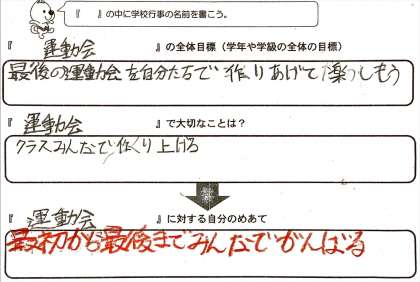 『　』の中に学校行事の名前を書こう。
『 運動会 』の全体目標（学年や学級の全体の目標）
最後の運動会を自分たちで作りあげて楽しもう
『 運動会 』で大切なことは？
クラスみんなで作り上げる
『 運動会 』に対する自分のめあて
最初から最後までみんなでがんばる